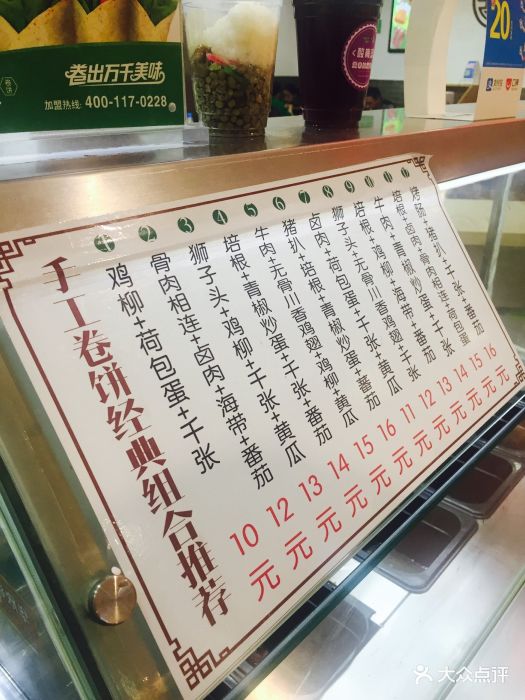 卷出万千美味
加盟热线: 400-117-0228
卷饼
20
手工卷饼经典组合推荐
1 鸡柳+荷包蛋+干张 10元
2 骨肉相连+卤肉+海带+番茄 12元
3 狮子头+鸡柳+干张+黄瓜 13元
4 培根+青椒炒蛋+干张+番茄 14元
5 牛肉+无骨川香鸡翅+鸡柳+黄瓜 15元
6 猪扒+培根+青椒炒蛋+番茄 16元
7 卤肉+荷包蛋+干张+黄瓜 11元
8 狮子头+无骨川香鸡翅+干张 12元
9 培根+鸡柳+海带+番茄 13元
10 牛肉+青椒炒蛋+干张 14元
11 培根+卤肉+骨肉相连+荷包蛋 15元
烤肠+猪扒+干张+番茄 16元
大众点评